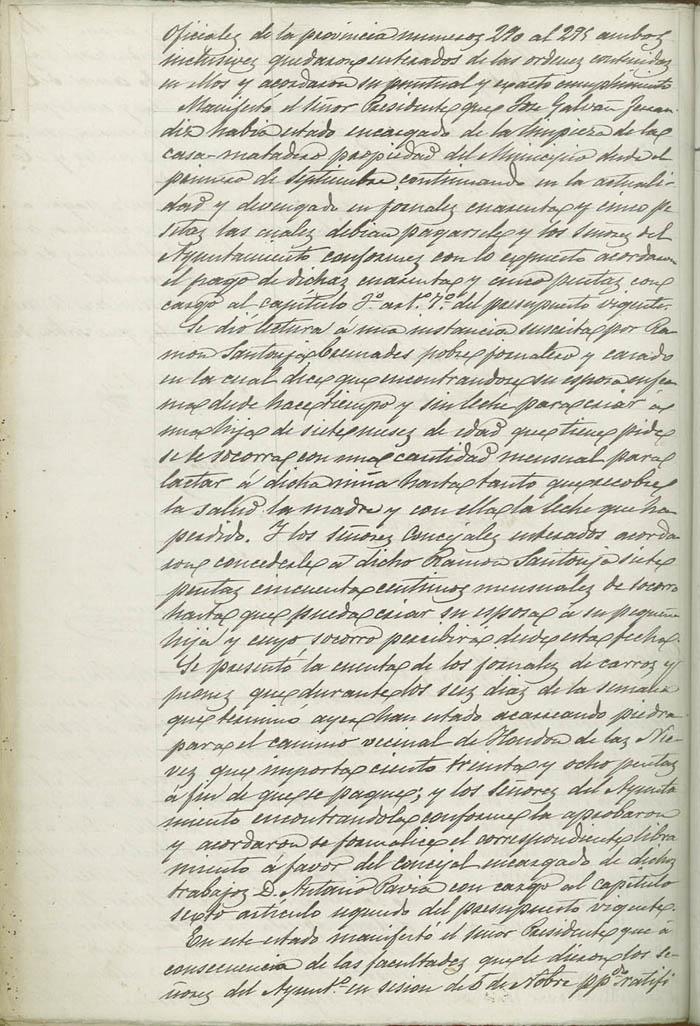 Oficiales de la provincia numeros 290 al 295 ambos
inclusives quedaron enterados de las ordenes contenidas
en ellos y acordaron su puntual y exacto cumplimiento.
Manifestó el Señor Presidente que José Galvañ
habia estado encargado de la limpieza de la
casa-matadero propiedad del Municipio desde el
primero de septiembre, continuando en la actuali-
dad y devengado en jornales cuarenta y cinco pe-
setas las cuales debian pagarsele y los señores del
Ayuntamiento conformes con lo expuesto acordaron
el pago de dichas cuarenta y cinco pesetas con
cargo al capitulo artº 7º del presupuesto vigente.
Se dió lectura á una instancia suscrita por Ra-
mon Santonja Cremades pobre jornalero y casado
en la cual dice que encontrandose su esposa enfer
ma desde hace tiempo y sin leche para criar á
una hija de siete meses de edad que tiene pide
se le socorra con una cantidad mensual para
lactar á dicha niña hasta tanto que recobre
la salud la madre y con ella la leche que ha
perdido. Y los señores Concejales enterados acorda-
ron concederle á dicho Ramon Santonja siete
pesetas cincuenta centimos mensuales de socorro
hasta que pueda criar su esposa á su pequeña
hija y cuyo socorro percibirá desde esta fecha.
Se presentó la cuenta de los jornales de carros y
peones que durante los seis dias de la semana
que terminó ayer han estado acarreando piedra
para el camino vecinal de Hondon de las Nie-
ves que importa ciento treinta y ocho pesetas
á fin de que se pague; y los señores del Ayunta
miento encontrandola conforme la aprobaron
y acordaron se formalice el correspondiente libra
miento á favor del concejal encargado de dichos
trabajos D. Antonio Pavia con cargo al capitulo
sexto articulo segundo del presupuesto vigente.
En este estado manifestó el señor Presidente que á
consecuencia de las facultades que le dieron los se-
ñores del Ayuntº en sesion de 6 de Nobre ppdo ratifi